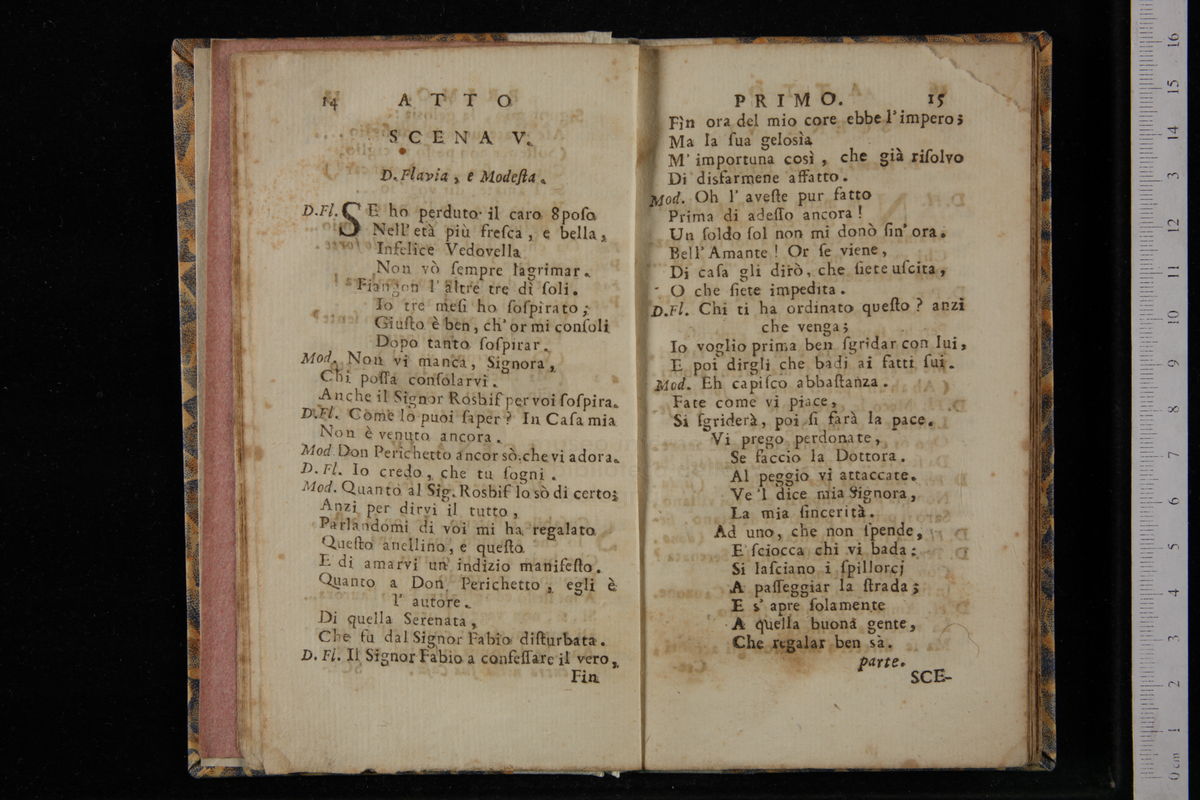 14 ATTO
SCENA V.
D. Flavia, e Modeſta.
D.Fl. SE ho perduto il caro Spoſo
Nell' età più freſca, e bella,
Infelice Vedovella
Non vò ſempre lagrimar.
Piangon l' altre tre dì ſoli.
Io tre meſi ho ſoſpirato;
Giuſto è ben, ch' or mi conſoli
Dopo tanto ſoſpirar.
Mod. Non vi manca, Signora,
Chi poſſa conſolarvi.
Anche il Signor Rosbif per voi ſoſpira.
D.Fl. Come lo puoi ſaper? In Caſa mia
Non è venuto ancora.
Mod. Don Perichetto ancor sò, che vi adora.
D. Fl. Io credo, che tu ſogni.
Mod. Quanto al Sig. Rosbif lo sò di certo;
Anzi per dirvi il tutto,
Parlandomi di voi mi ha regalato
Queſto anellino, e queſto
E di amarvi un' indizio manifeſto.
Quanto a Don Perichetto, egli è
l' autore.
Di quella Serenata,
Che fu dal Signor Fabio diſturbata.
D. Fl. Il Signor Fabio a confeſſare il vero,
Fin
PRIMO. 15
Fin ora del mio core ebbe l'impero;
Ma la ſua geloſìa
M' importuna così, che già riſolvo
Di disfarmene affatto.
Mod. Oh l' aveſte pur fatto
Prima di adeſſo ancora!
Un ſoldo ſol non mi donò ſin' ora.
Bell' Amante! Or ſe viene,
Di caſa gli dirò, che ſiete uſcita,
O che ſiete impedita.
D.Fl. Chi ti ha ordinato queſto? anzi
che venga;
Io voglio prima ben ſgridar con lui,
E poi dirgli che badi ai fatti ſui.
Mod. Eh capiſco abbaſtanza.
Fate come vi piace,
Si ſgriderà, poi ſi farà la pace.
Vi prego perdonate,
Se faccio la Dottora.
Al peggio vi attaccate.
Ve 'l dice mia Signora,
La mia ſincerità.
Ad uno, che non ſpende,
E' ſciocca chi vi bada:
Si laſciano i ſpillorcj
A paſſeggiar la ſtrada;
E s' apre ſolamente
A quella buona gente,
Che regalar ben sa.
parte.
SCE-